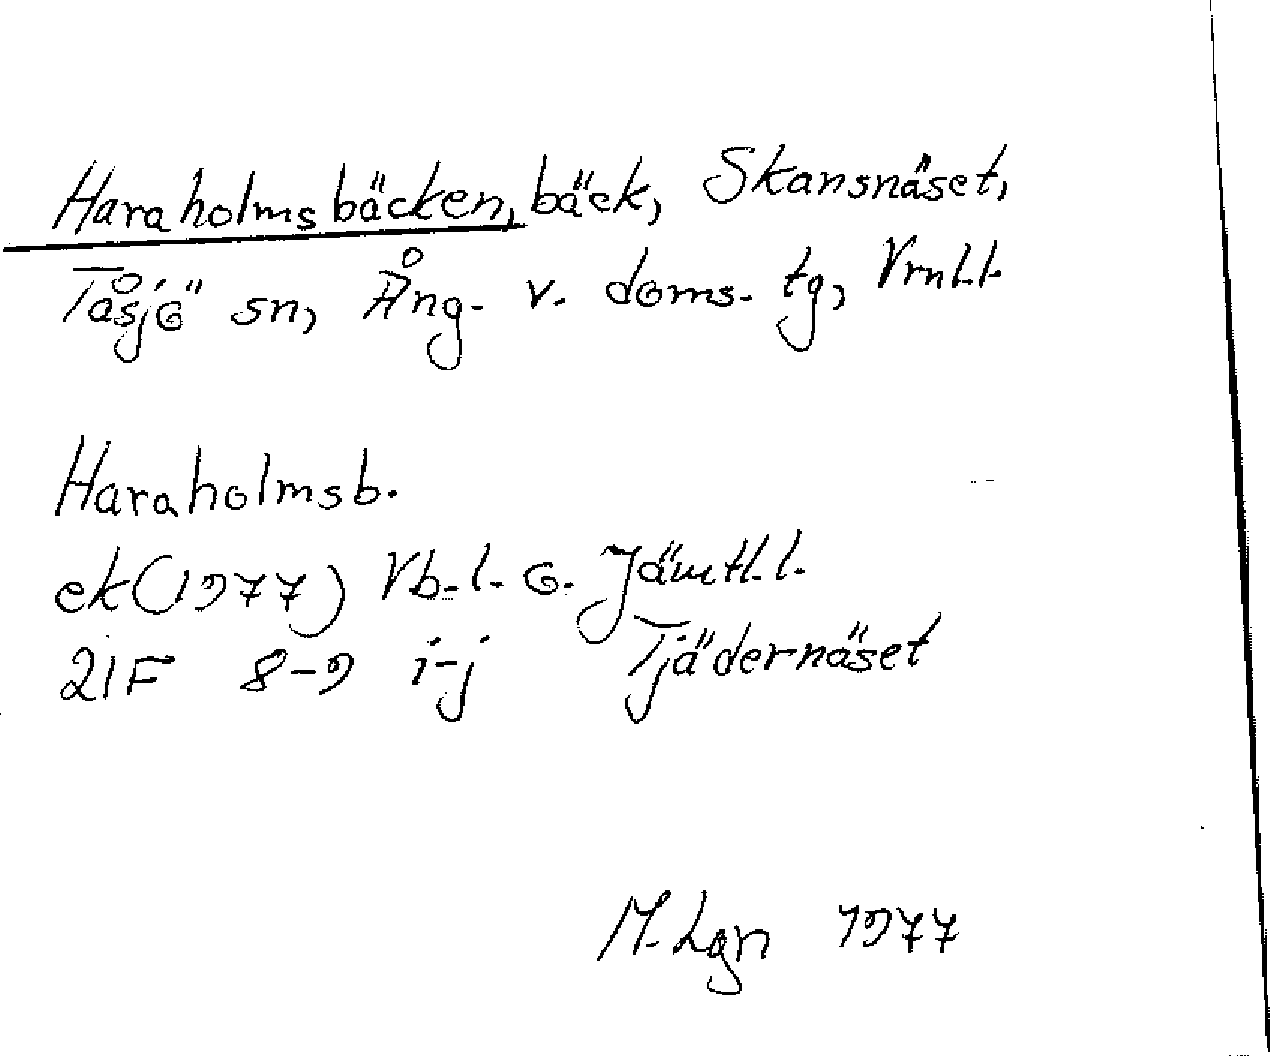 Haraholmsbäcken, bäck, Skansnäset,
Tåsjö sn, Ång. v. doms. tg, Vrnl.l.
Haraholmsb.
ek (1977) Vb. l. o. Jämtl. l.
21F 8-9 i-j Tjädernäset
M. Lgn 1977